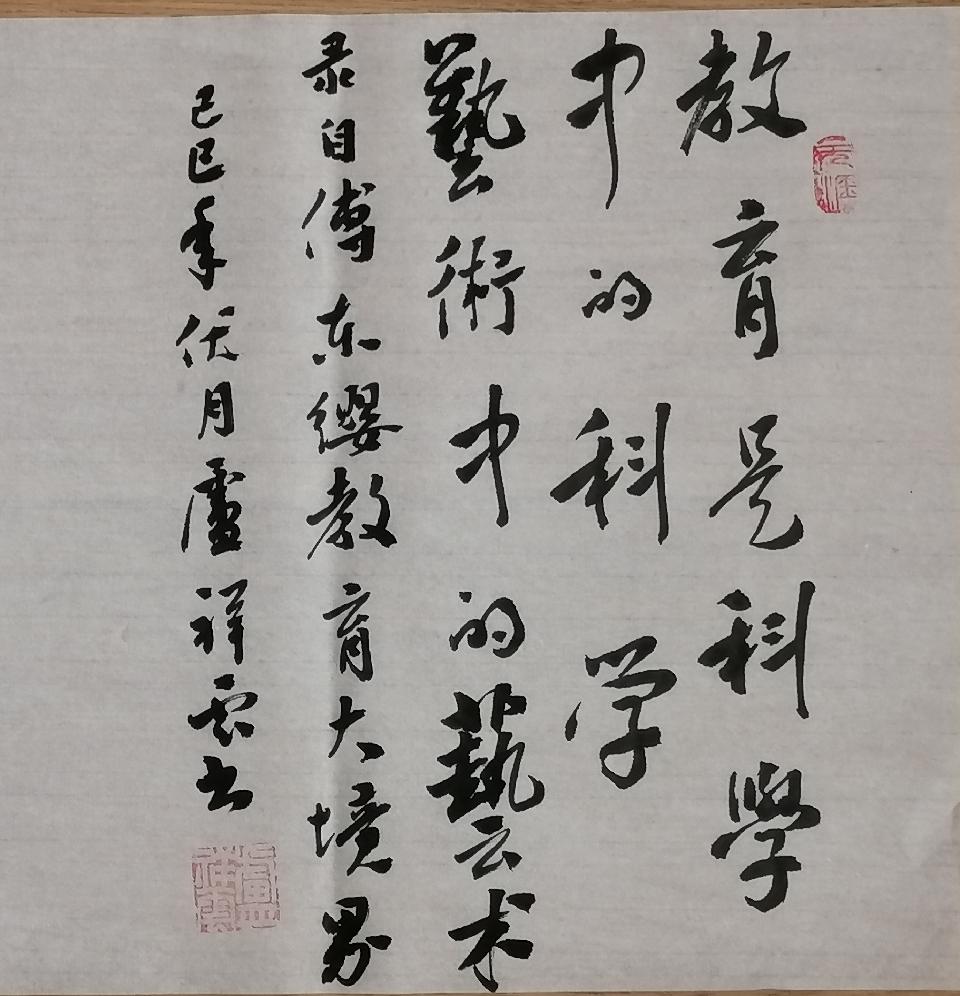 教育是科學
中的科学
藝術中的藝术
录自傅东缨教育大境界
己巳年伏月盧祥云书